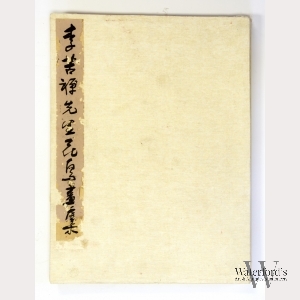 李苦禅先生花鸟画集
Waterford's